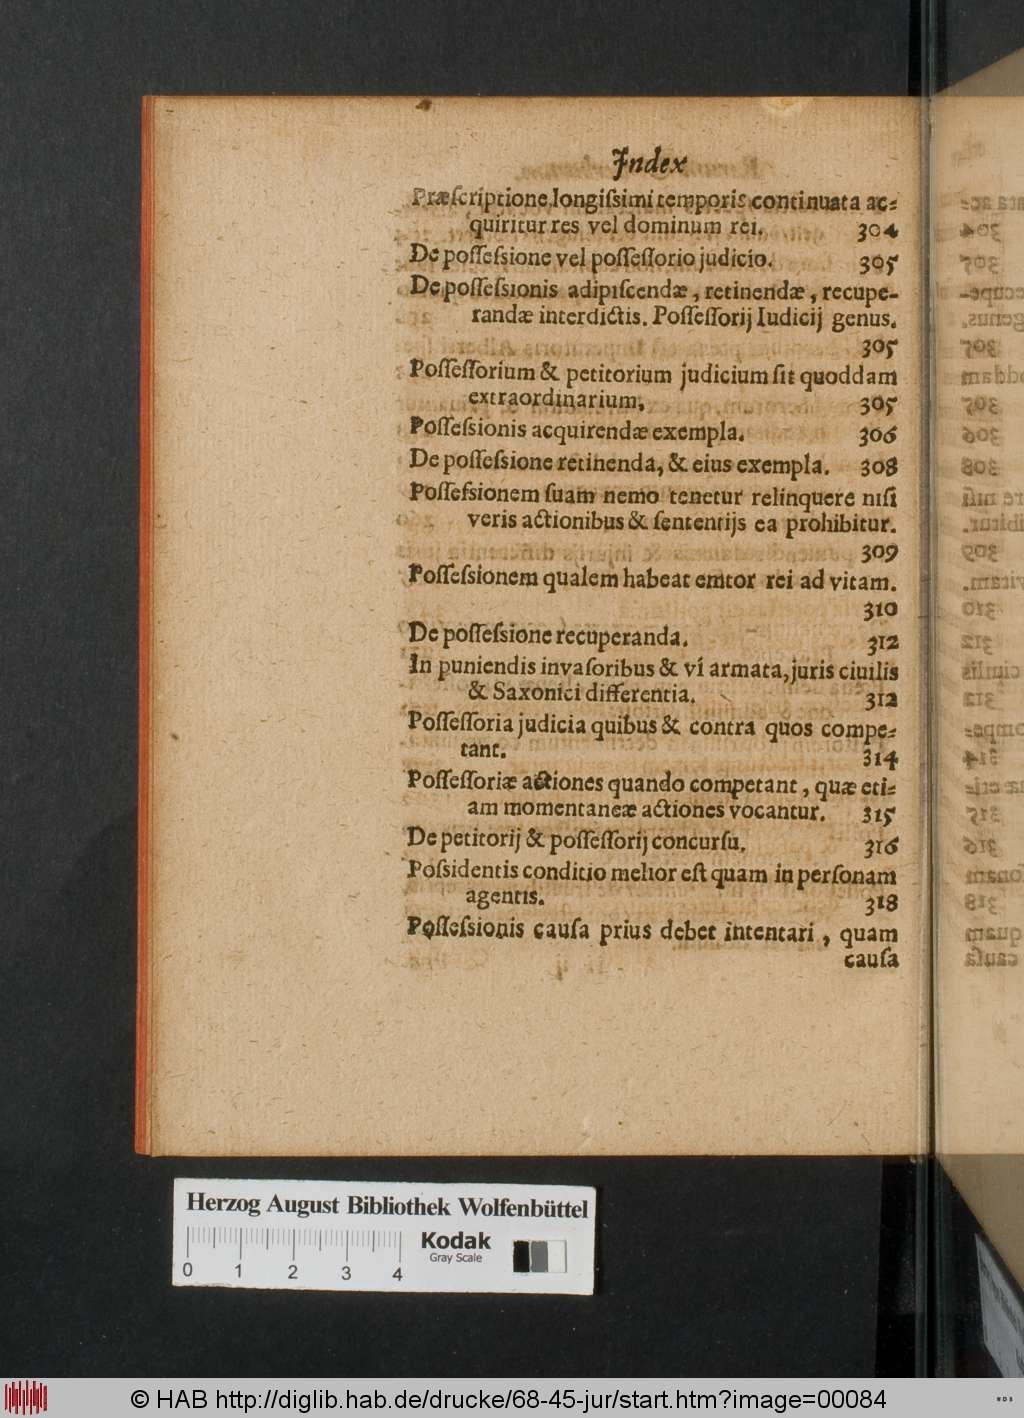 Index
Præſcriptione longiſsimi temporis continuata ac-
quiritur res vel dominum rei. 304
De poſſeſsione vel poſſeſſorio judicio. 305
De poſſeſsionis adipiſcendæ, retinendæ, recupe-
randæ interdictis. Poſſeſſorij Iudicij genus.
305
Poſſeſſorium & petitorium judicium ſit quoddam
extraordinarium, 305
Poſſeſsionis acquirendæ exempla. 306
De poſſeſsione retinenda, & eius exempla. 308
Poſſeſsionem ſuam nemo tenetur relinquere niſi
veris actionibus & ſententijs ea prohibitur.
309
Poſſeſsionem qualem habeat emtor rei ad vitam.
310
De poſſeſsione recuperanda. 312
In puniendis invaſoribus & vi armata, juris ciuilis
& Saxonici differentia. 312
Poſſeſſoria judicia quibus & contra quos compe-
tant. 314
Poſſeſſoriæ actiones quando competant, quæ eti-
am momentaneæ actiones vocantur. 315
De petitorij & poſſeſſorij concurſu. 316
Poſsidentis conditio melior eſt quam in perſonam
agentis. 318
Poſſeſsionis cauſa prius debet intentari, quam
cauſa
Herzog August Bibliothek Wolfenbüttel
Kodak
Gray Scale
0 1 2 3 4
© HAB http://diglib.hab.de/drucke/68-45-jur/start.htm?image=00084